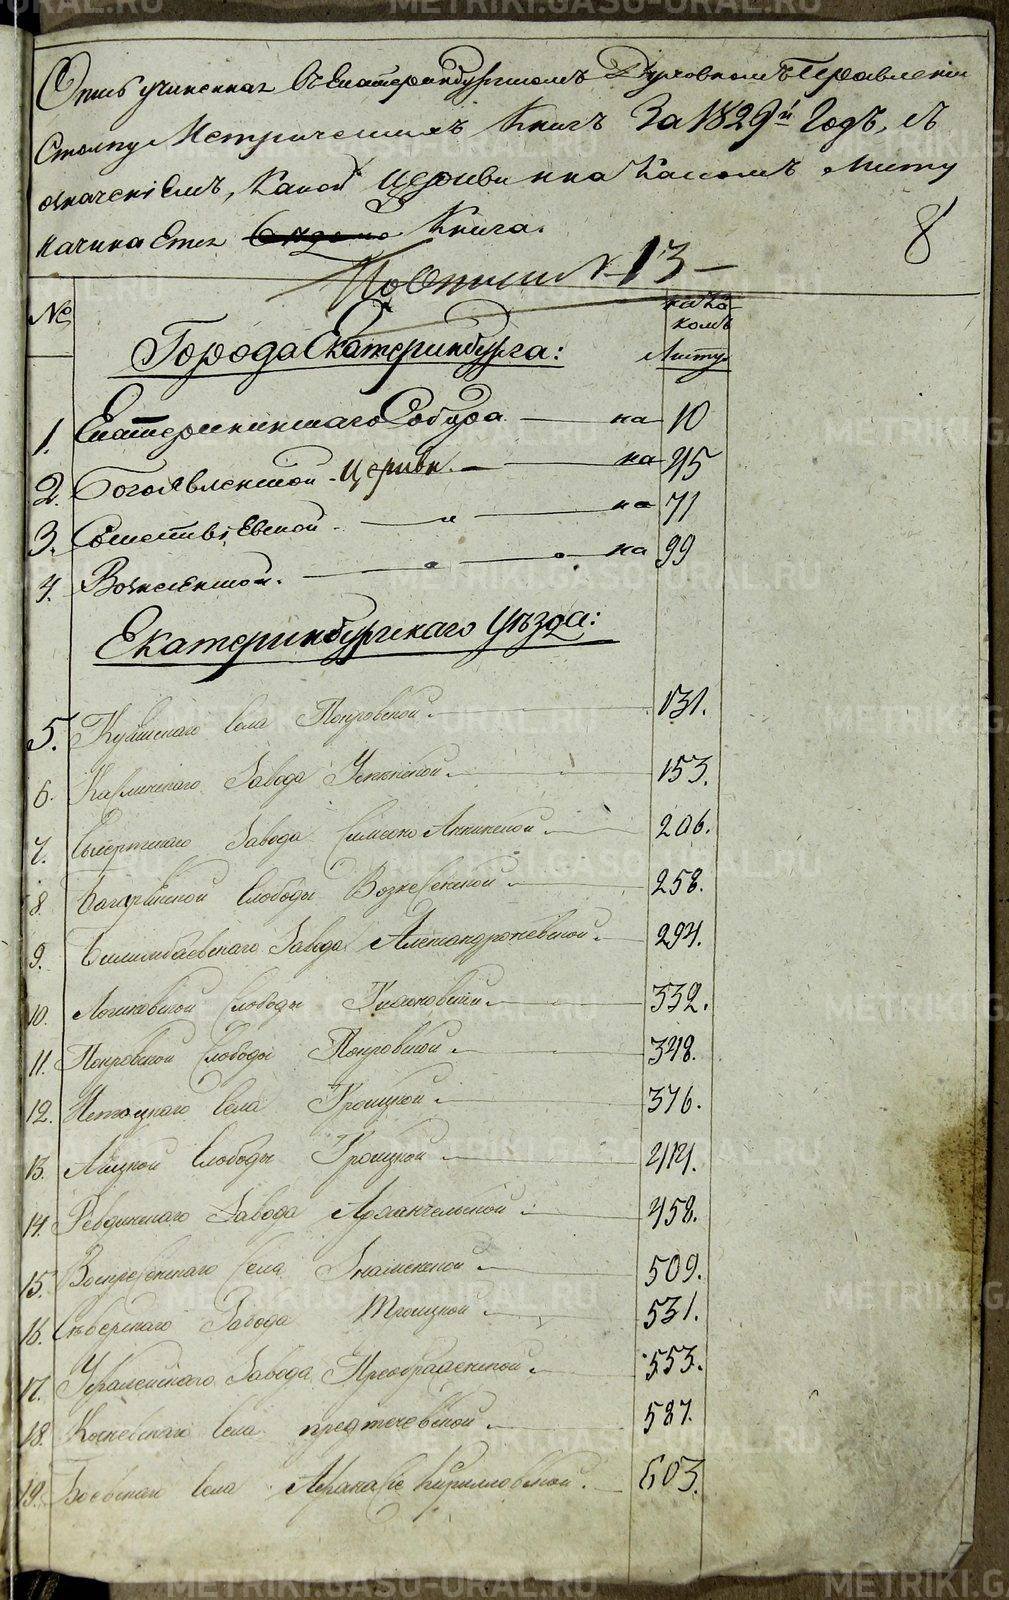 Опись учиненная Въ Екатеринбургскомъ Духовномъ Правленіи
Столпу Метрическихъ Книгъ За 1829й Годъ, съ
означеніемъ, Какой Церкви на Какомъ Листу
начинаетса Книга.
8
По Описи № 13
№
на Ка-
комъ
Листу
Города Екатеринбурга:
1. Екатерининскаго Собора — на 10
2. Богоявленской Церкви. — на 45
3. Сошествіевской — " — на 71
4. Вознесенской. — на 99
Екатеринбургскаго уѣзда:
5. села Покровской. 131.
6. Каслинскаго Завода Успенской. 153.
7. Сысертскаго Завода Симеоно Аннинской 206.
8. Багаряцкой Слободы Вознесенской 258.
9. Билимбаевскаго Завода Александроневской. 294.
10. Слободы 332.
11. Покровской Слободы Покровской 348.
12. села Троицкой 376.
13. Слободы Троицкой 414.
14. Ревдинскаго Завода Архангельской 458.
15. Воскресенскаго Села Знаменской 509.
16. Сѣверскаго Завода Троицкой 531.
17. Уфалейскаго Завода Преображенской 553.
18. села предтечевской 587.
19. Боевскаго села Афанасіе Кирилловской. 603.
METRIKI.GASO-URAL.RU